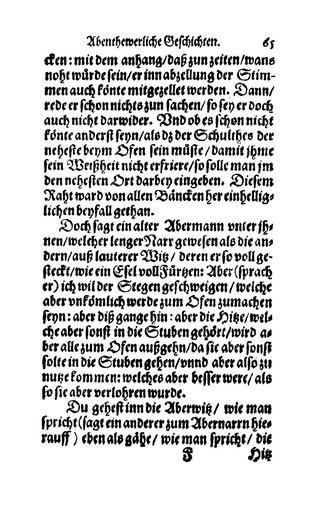 Abenthewerliche Geschichten. 65
cken: mit dem anhang/daß zun zeiten/wans
noht würde sein/er inn abzellung der Stim-
men auch könte mitgezellet werden. Dann/
rede er schon nichts zun sachen/so sey er doch
auch nicht darwider. Vnd ob es schon nicht
könte anderst seyn/als dz der Schultheß der
neheste beym Ofen sein müste/damit jhme
sein Weißheit nicht erfriere/so solle man jm
den nehesten Ort darbey eingeben. Diesem
Raht ward von allen Bäncken her einhellig-
lichen beyfall gethan.
Doch sagt ein alter Abermann vnter jh-
nen/welcher lenger Narr gewesen als die an-
dern/auß lauterer Witz/ deren er so voll ge-
steckt/wie ein Esel voll Fürtzen: Aber (sprach
er) ich wil der Stegen geschweigen/welche
aber vnkömlich werde zum Ofen zumachen
seyn: aber diß gange hin: aber die Hitze/wel-
che aber sonst in die Stuben gehört/wird a-
ber alle zum Ofen außgehn/da sie aber sonst
solte in die Stuben gehen/vnnd aber also zu
nutze kommen: welches aber besser were/als
so sie aber verlohren wurde.
Du gehest inn die Aberwitz/ wie man
spricht (sagt ein anderer zum Abernarrn hie-
rauff) eben als gähe/ wie man spricht/ die
P Hitz